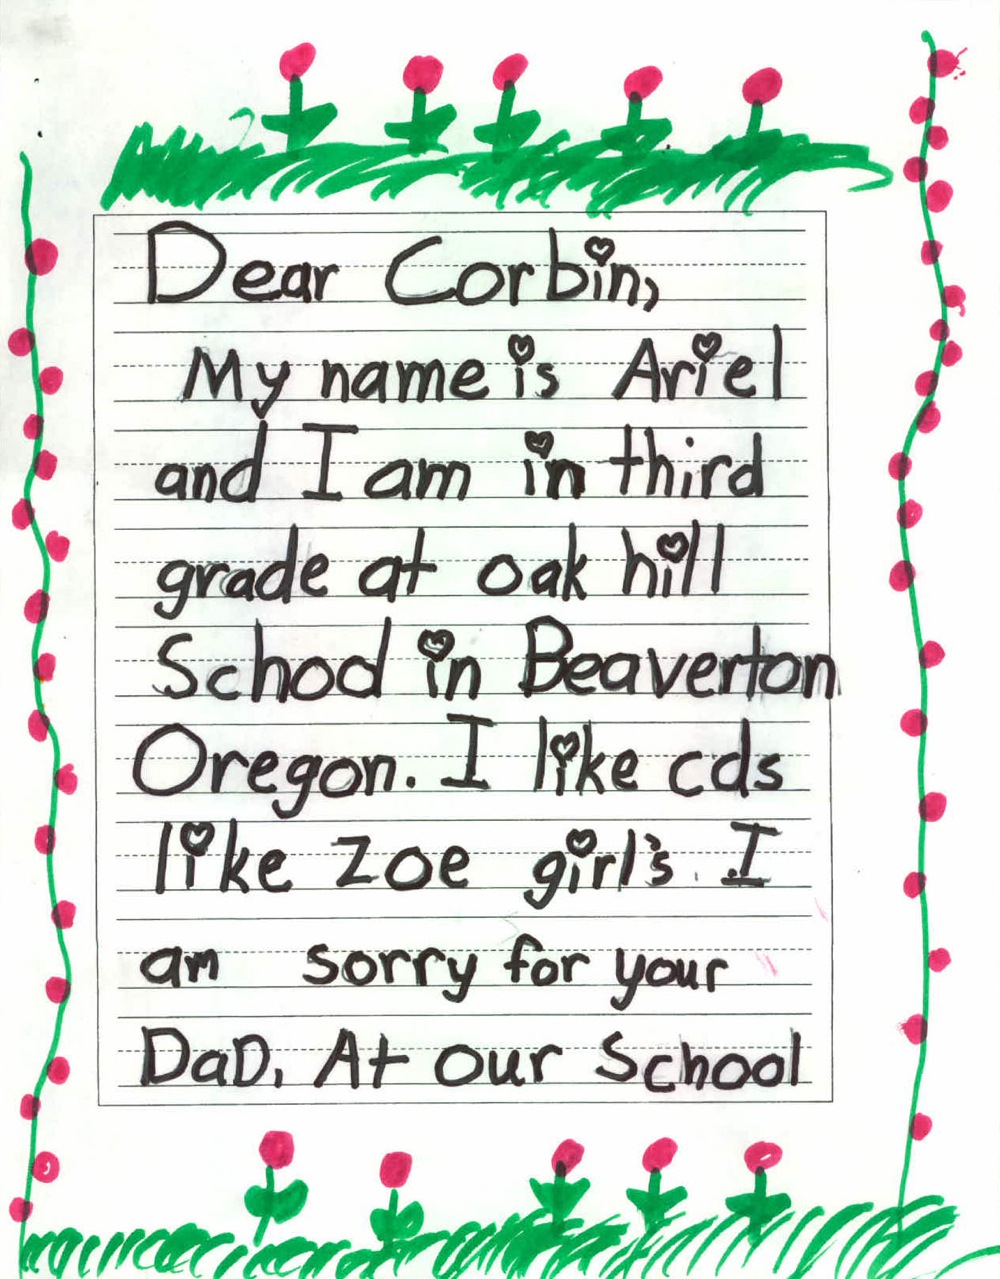 Dear Corbin,
My name is Ariel
and I am in third
grade at oak hill
School in Beaverton
Oregon. I like cds
like zoe girl's. I
am sorry for your
DaD. At our School